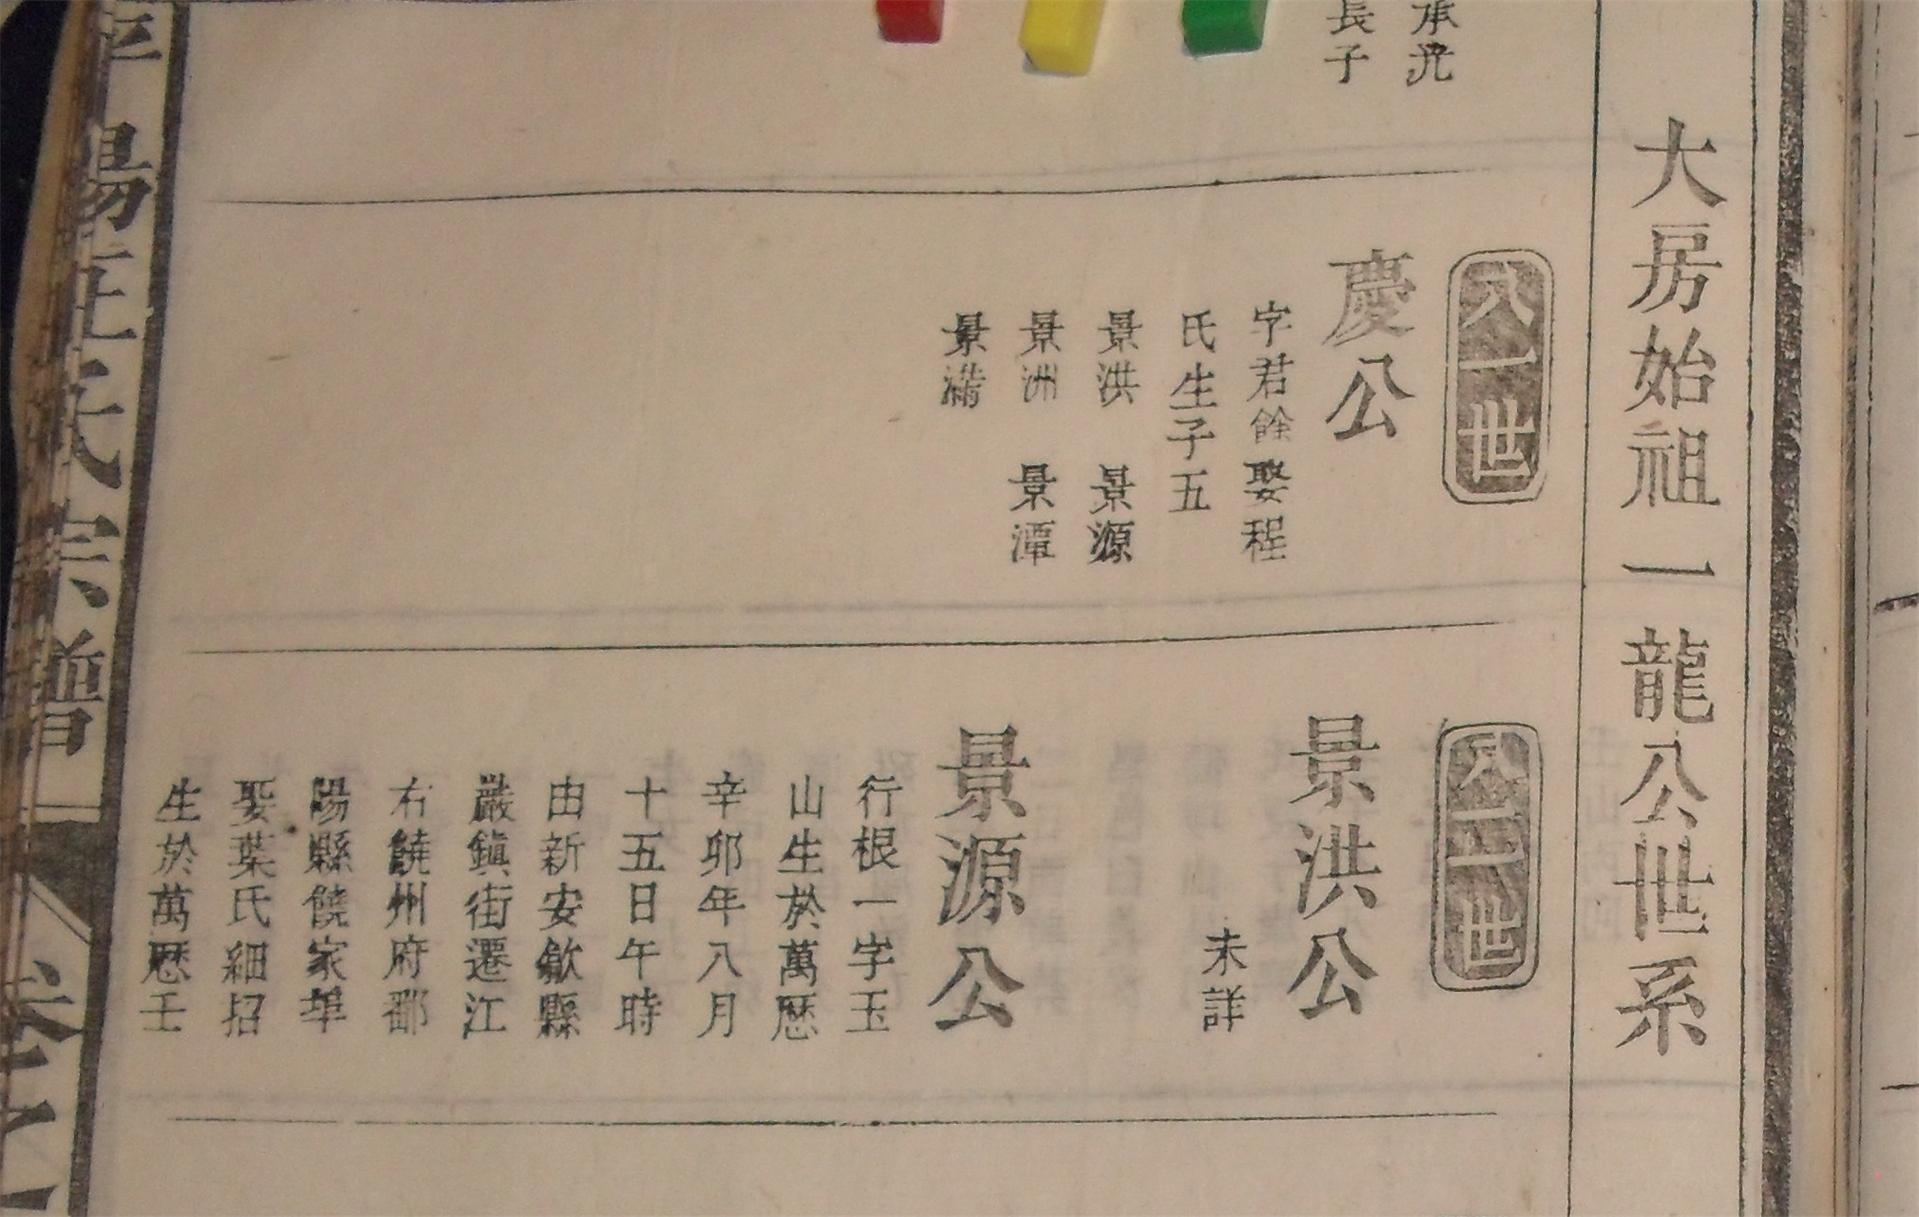 大房始祖一龍公世系
承光
長子
八一世
慶公
字君餘娶程
氏生子五
景洪 景源
景洲 景潭
景满
八二世
景洪公
未詳
景源公
行根一字玉
山生於萬厯
辛卯年八月
十五日午時
由新安歙縣
嚴鎮街遷江
右饒州府鄱
陽縣饒家埠
娶葉氏細招
生於萬厯壬
陽汪氏宗譜